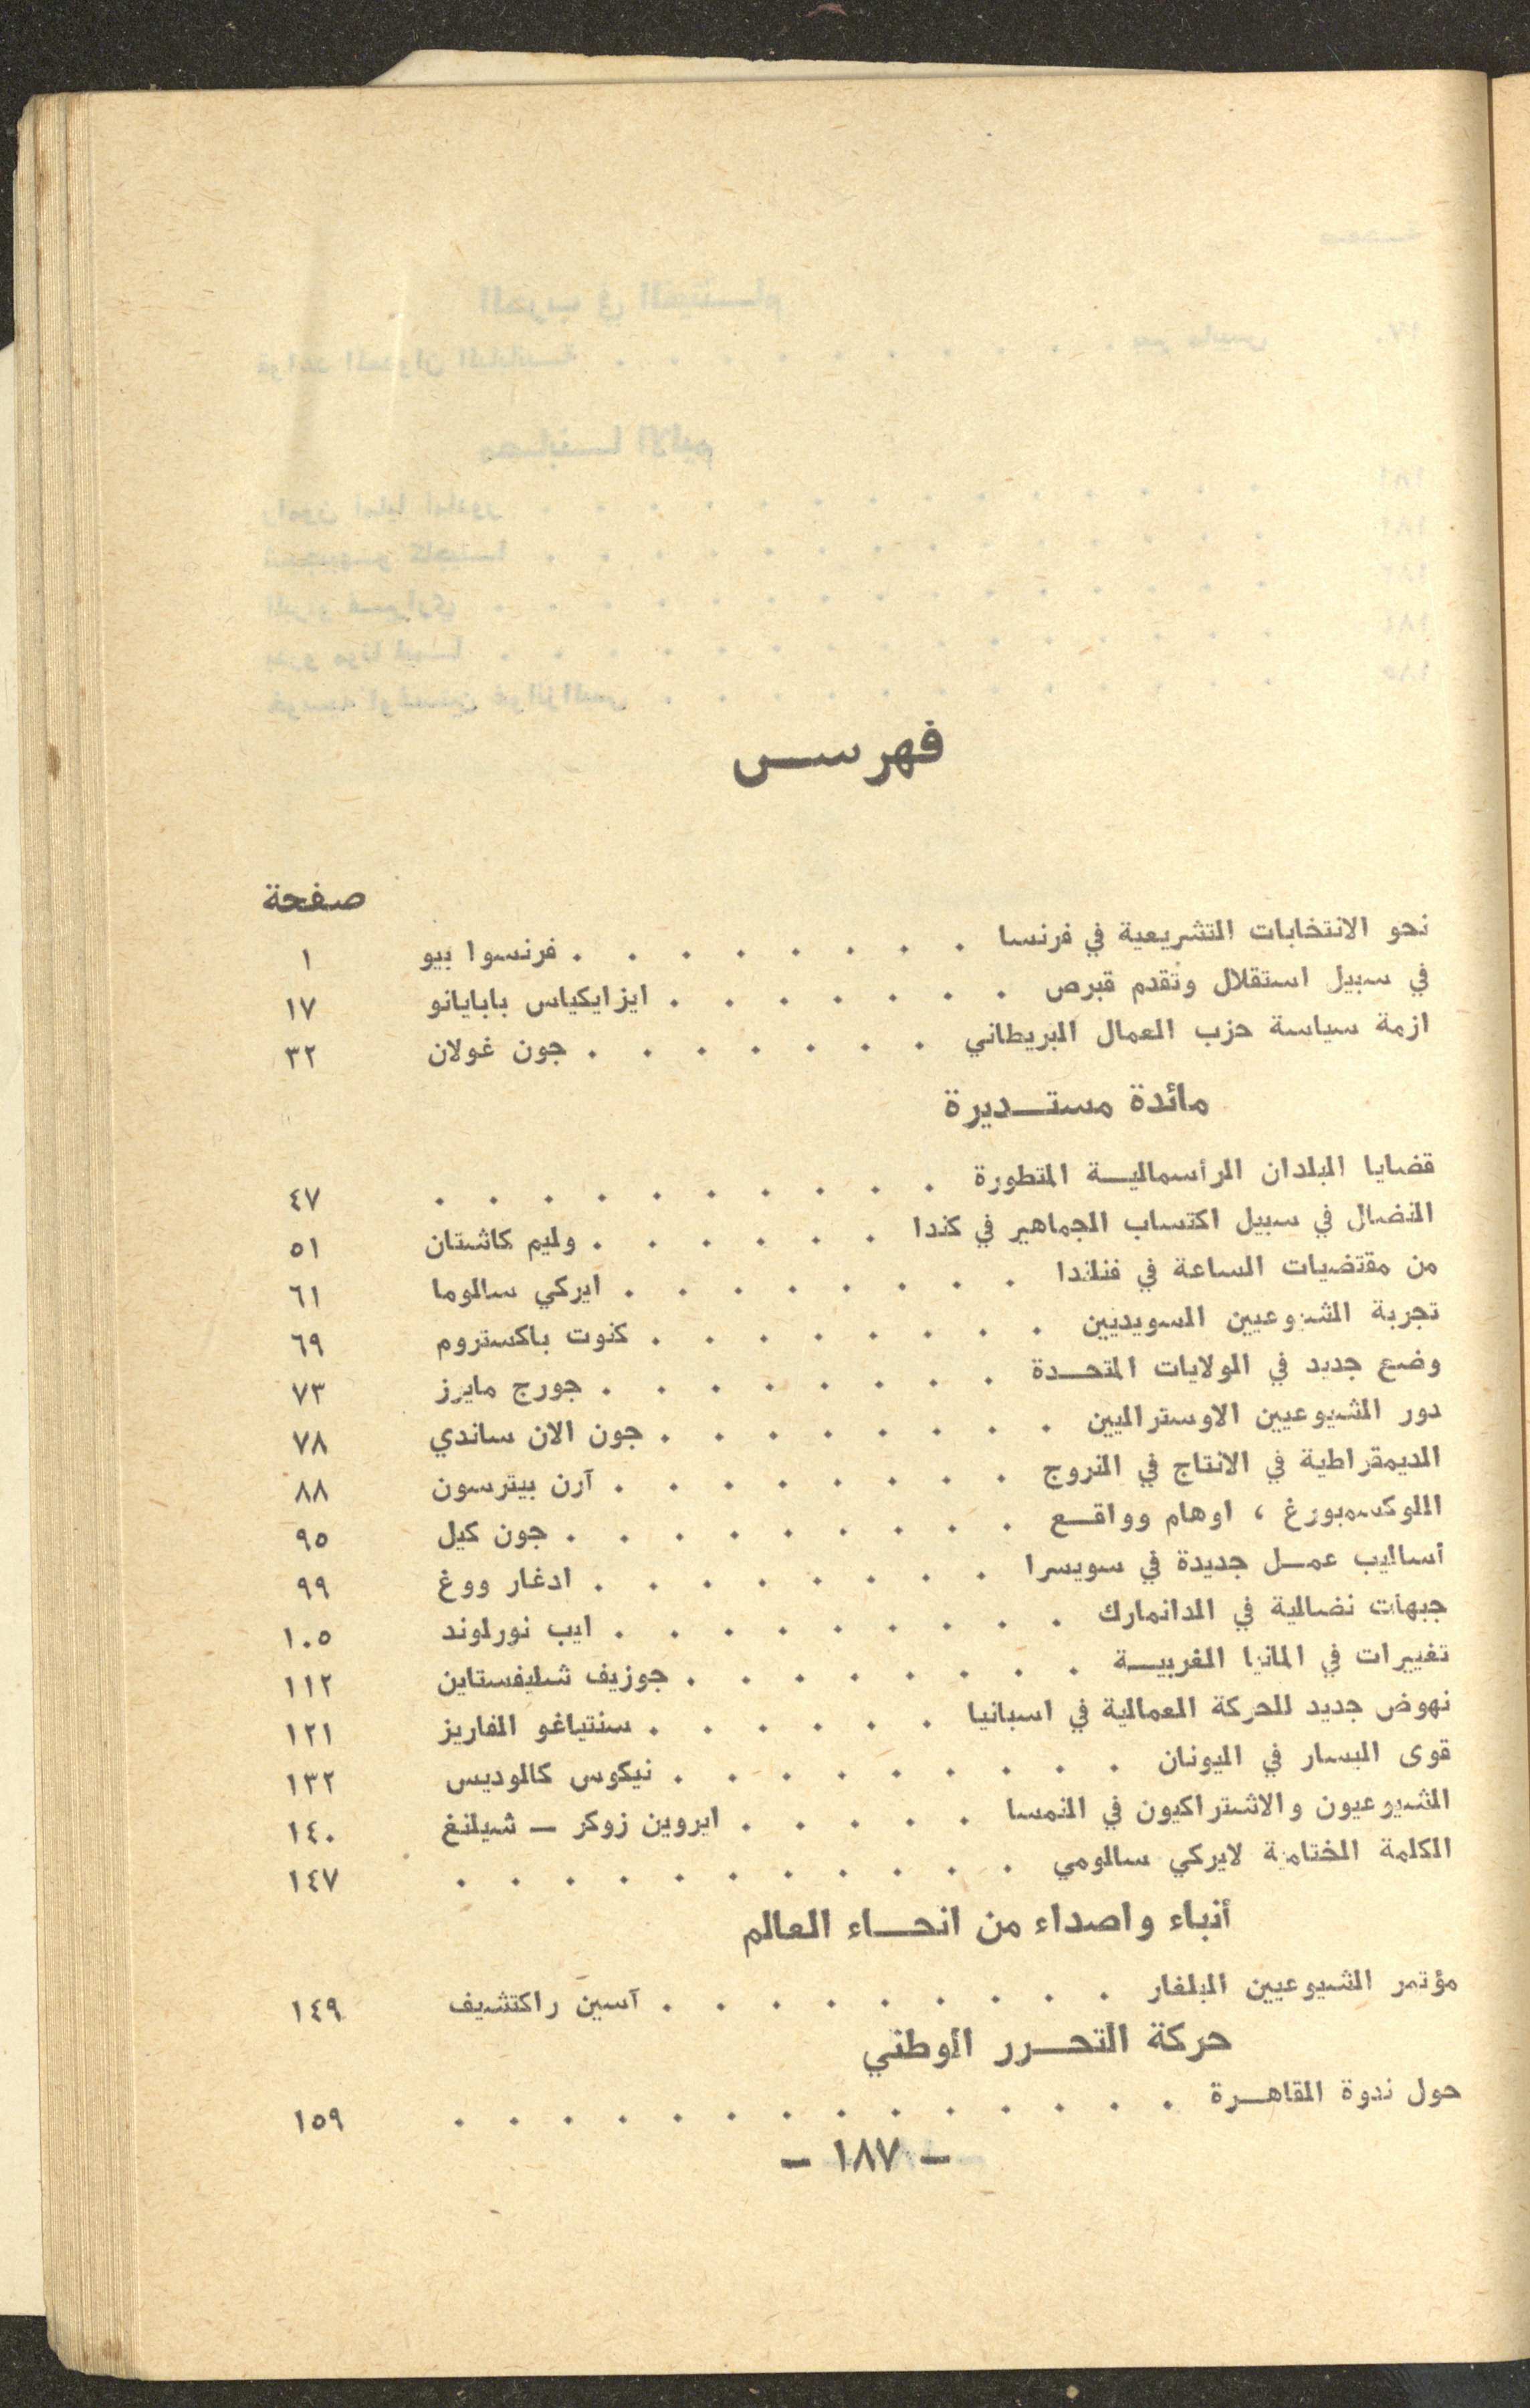 فهرس
صفحة
نحو الانتخابات التشريعية في فرنسا . . . . . . . . فرنسوا بيو ١
في سبيل استقلال وتقدم قبرص . . . . . . . ايزايكياس بابايانو ١٧
ازمة سياسة حزب العمال البريطاني . . . . . . . جون غولان ٣٢
مائدة مستديرة
قضايا البلدان الرأسمالية المتطورة . . . . . . . . . . ٤٧
النضال في سبيل اكتساب الجماهير في كندا . . . . . . وليم كاشتان ٥١
من مقتضيات الساعة في فنلندا . . . . . . . . ايركي سالوما ٦١
تجربة الشيوعيين السويديين . . . . . . . . كنوت باكستروم ٦٩
وضع جديد في الولايات المتحدة . . . . . . . . جورج مايرز ٧٣
دور الشيوعيين الاوستراليين . . . . . . . . جون الان ساندي ٧٨
الديمقراطية في الانتاج في النروج . . . . . . . . آرن بيترسون ٨٨
اللوكسمبورغ ، اوهام وواقع . . . . . . . . . جون كيل ٩٥
أساليب عمل جديدة في سويسرا . . . . . . . . ادغار ووغ ٩٩
جبهات نضالية في الدانمارك . . . . . . . . . ايب نورلوند ١٠٥
تغييرات في المانيا الغربية . . . . . . . . جوزيف شليفستاين ١١٢
نهوض جديد للحركة العمالية في اسبانيا . . . . . . سنتياغو الفاريز ١٢١
قوى اليسار في اليونان . . . . . . . . . نيكوس كالوديس ١٣٢
الشيوعيون والاشتراكيون في النمسا . . . . . ايروين زوكر ـ شيلنغ ١٤٠
الكلمة الختامية لايركي سالومي . . . . . . . . . . . ١٤٧
أنباء واصداء من انحاء العالم
مؤتمر الشيوعيين البلغار . . . . . . . . . آسين راكتشيف ١٤٩
حركة التحرر الوطني
حول ندوة القاهرة . . . . . . . . . . . . . . ١٥٩
ـ ١٨٧ ـ